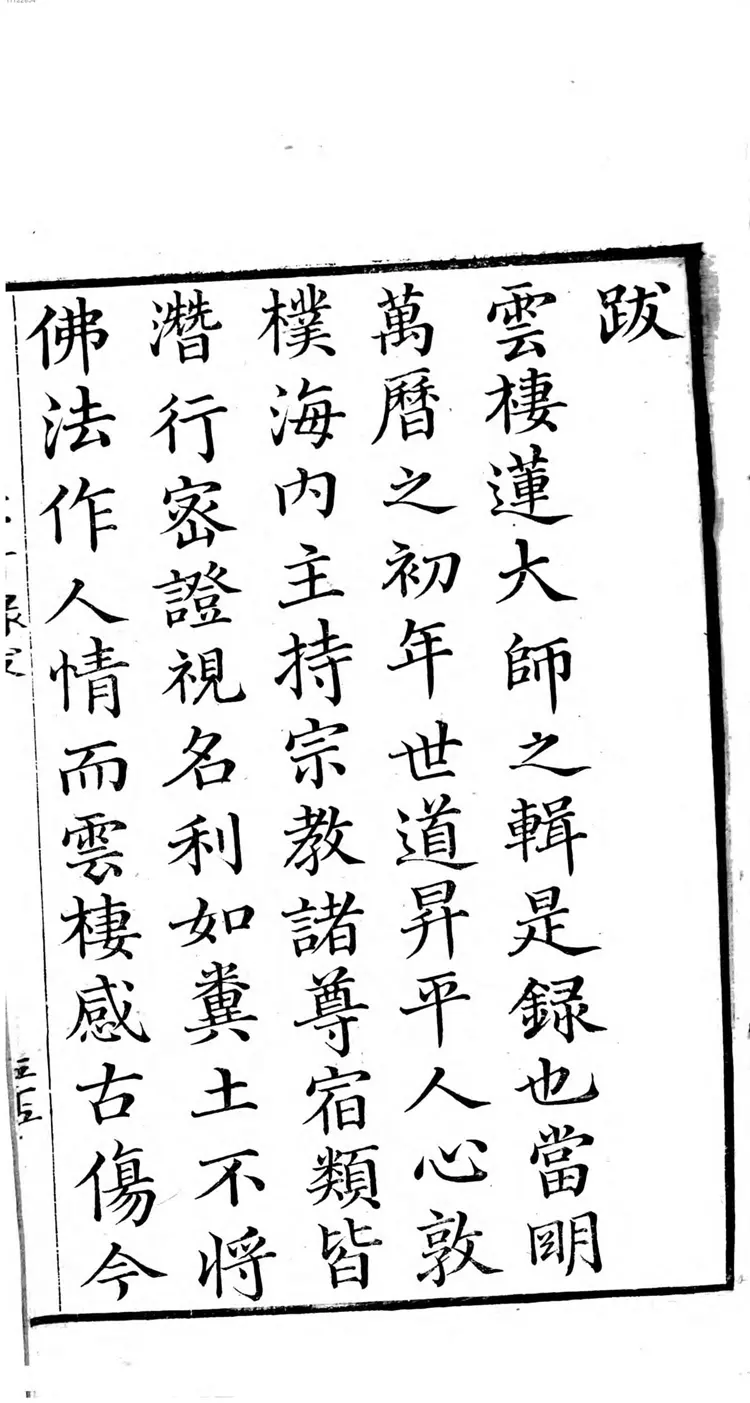 跋
雲棲蓮大師之輯是録也當明
萬曆之初年世道昇平人心敦
樸海内主持宗教諸尊宿類皆
潛行密證視名利如糞土不將
佛法作人情而雲棲感古傷今